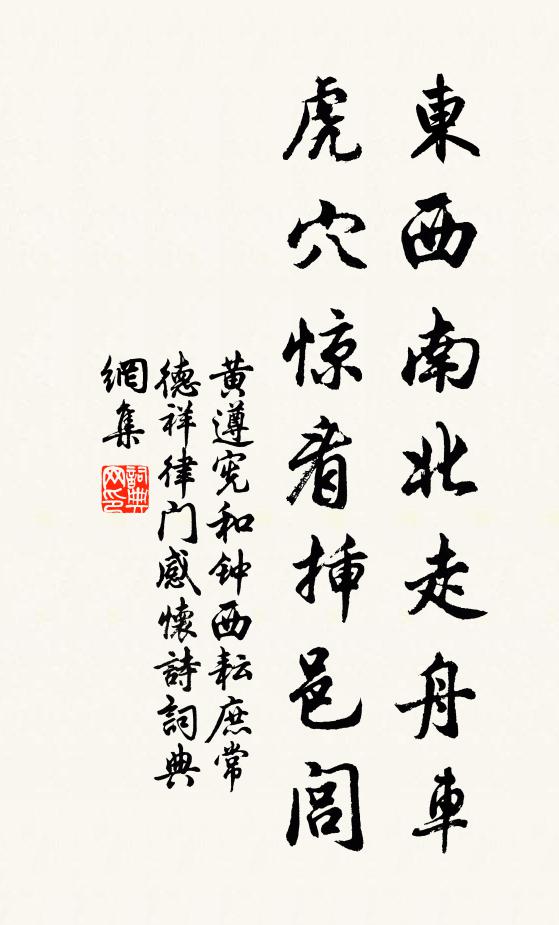 東西南北走舟車
虎穴惊看揷邑閭
黃遵宪和钟西耘庶常
德祥律门感懷詩詞典
網集
詞典
网印